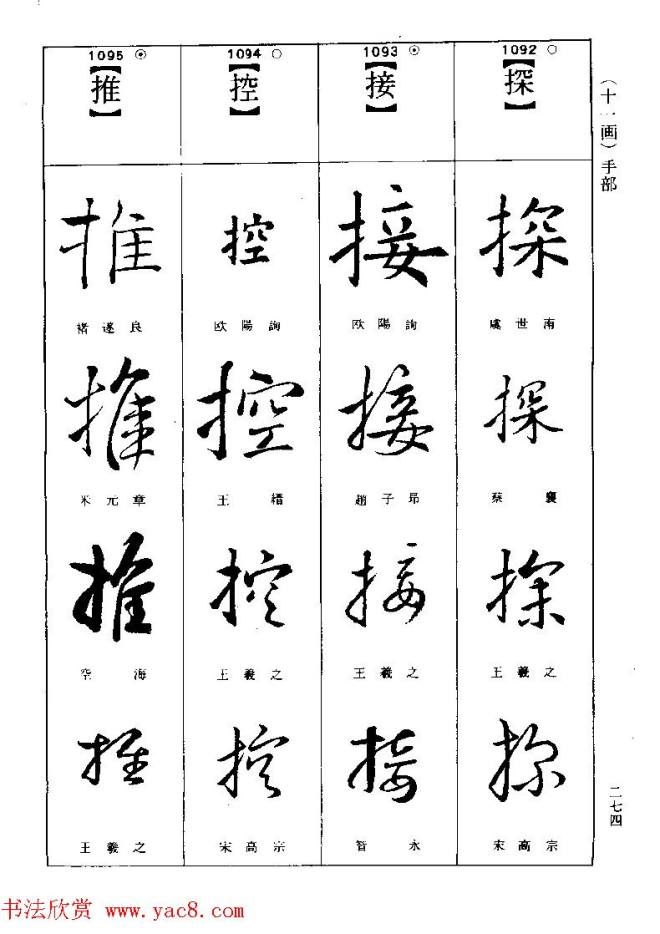 （十一画）手部
1092 ○
【探】
探
虞世南
探
蔡襄
探
王羲之
探
宋高宗
1093 ⊙
【接】
接
欧陽詢
接
趙子昂
接
王羲之
接
智永
1094 ○
【控】
控
欧陽詢
控
王縉
控
王羲之
控
宋高宗
1095 ⊙
【推】
推
褚遂良
推
米元章
推
空海
推
王羲之
二七四
书法欣赏 www.yac8.com